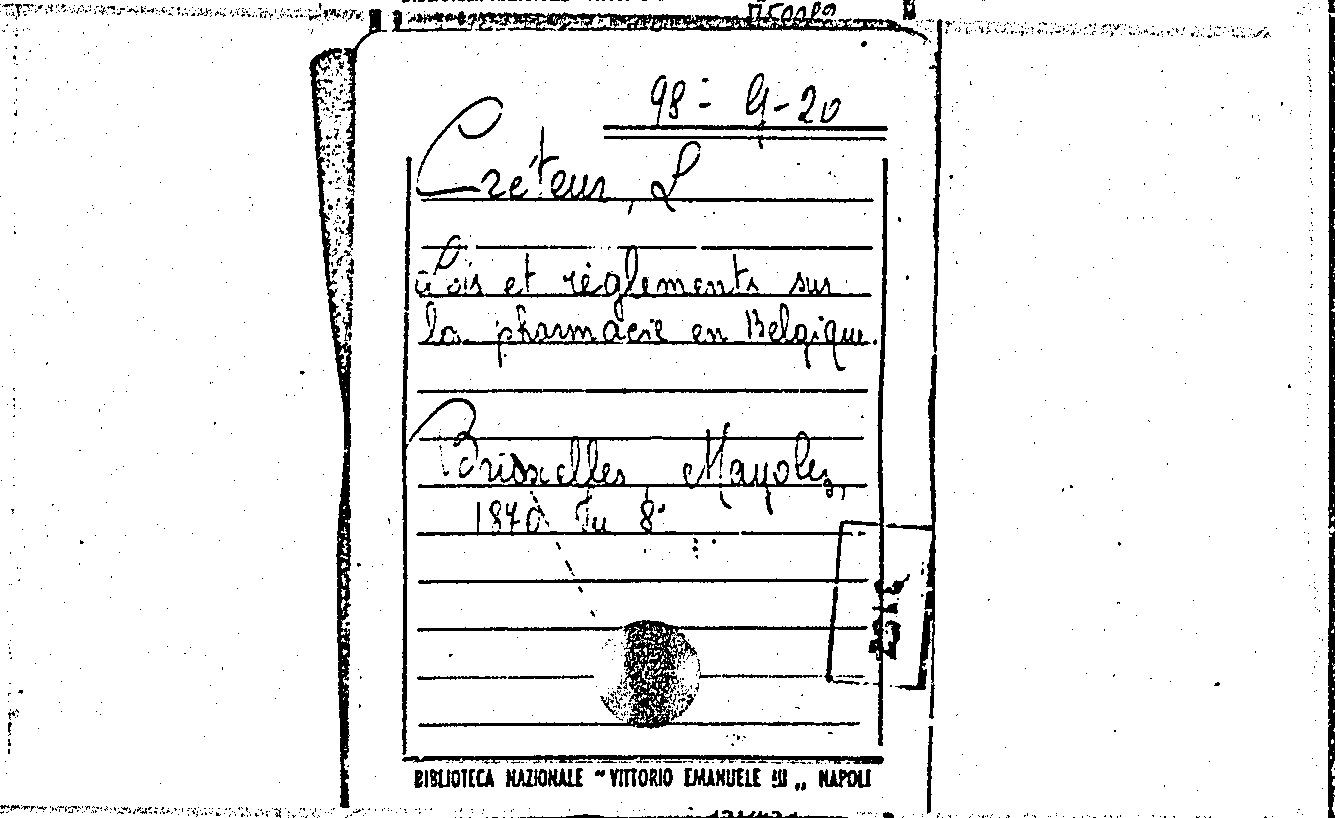 98 - G-20
Créteur, L
Lois et règlements sur
la pharmacie en Belgique.
Bruxelles, Mayolez,
1870 in 8°
BIBLIOTECA NAZIONALE "VITTORIO EMANUELE III„ NAPOLI